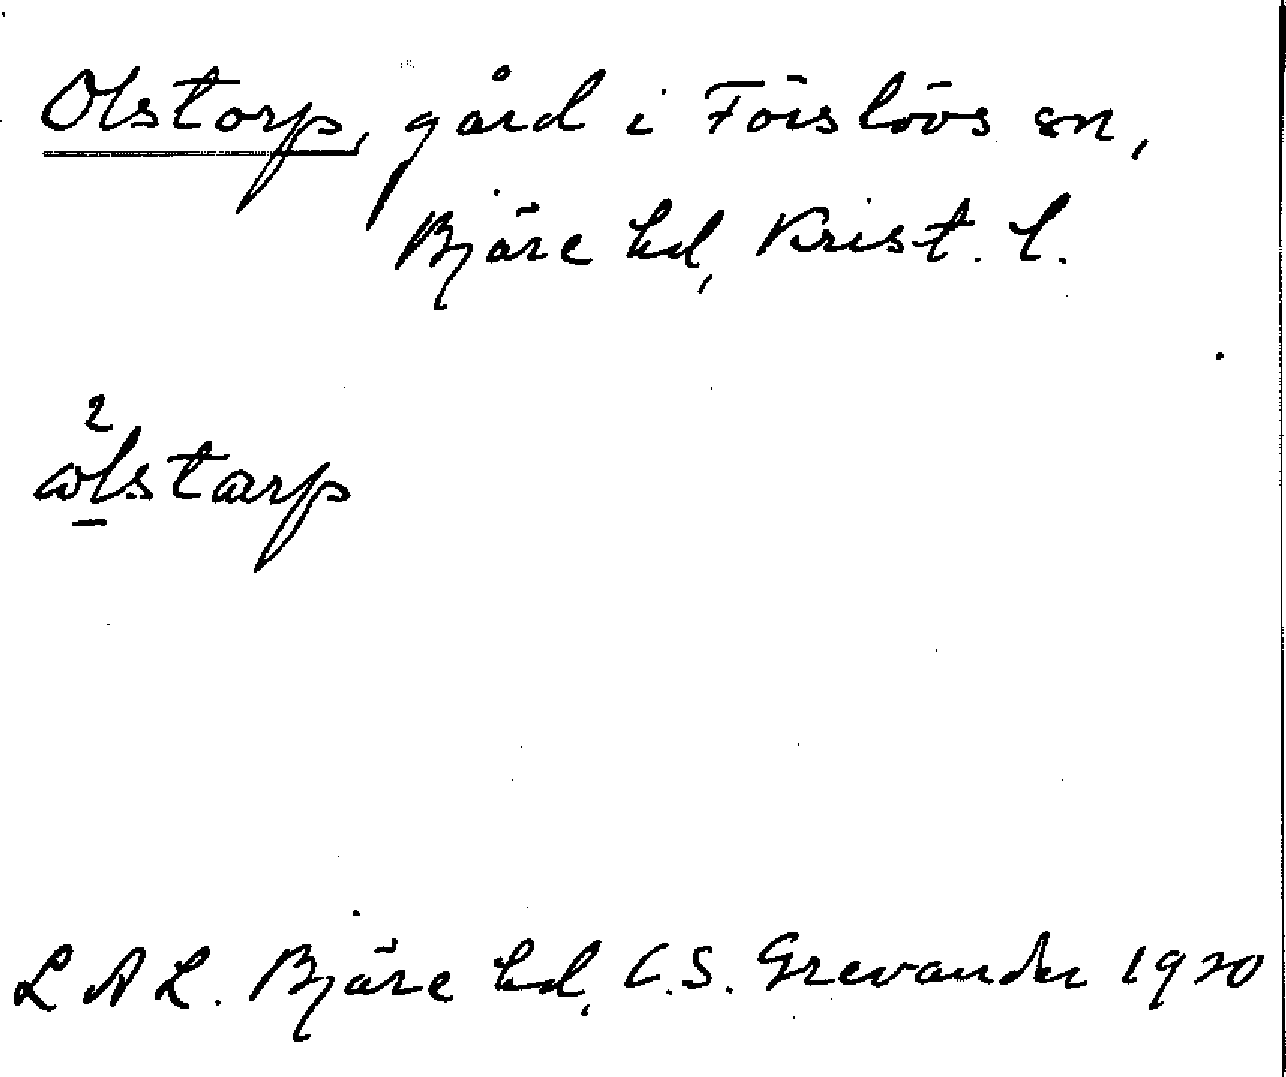 Olstorp, gård i Förslövs sn,
Bjäre hd, Krist. l.
2
ωlstærp
L A L. Bjäre hd, C. S. Grevander 1920